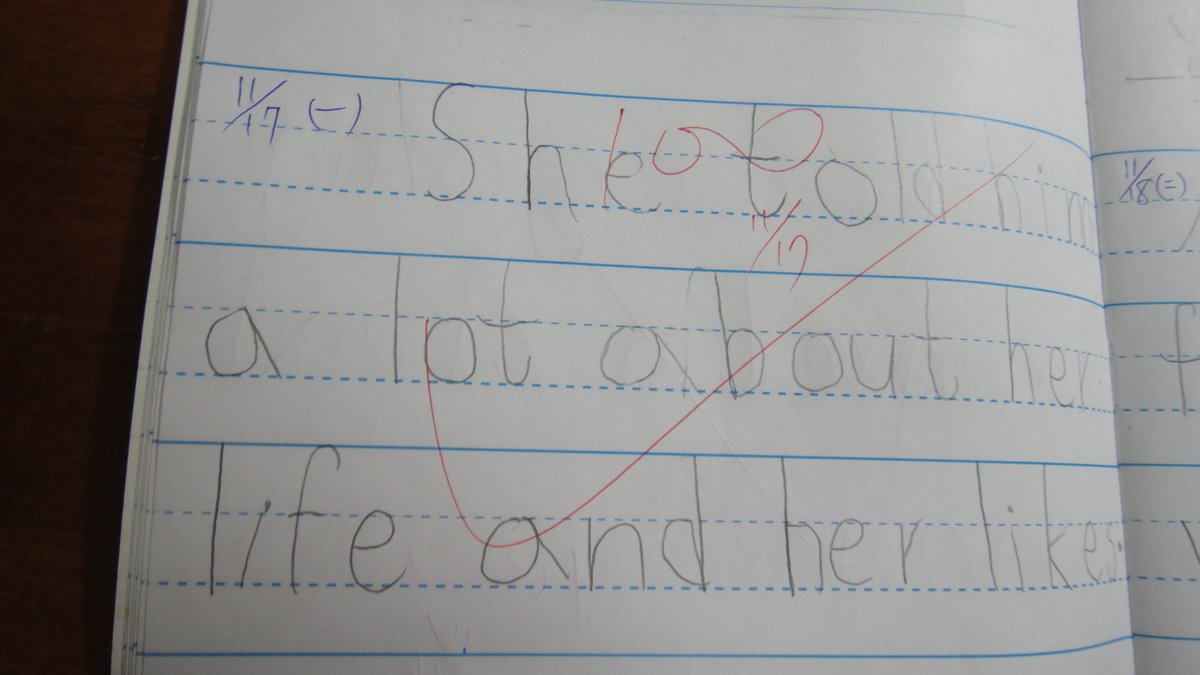 11/17 (一) She told him
11/17
a lot about her
life and her likes.
11/18 (二)
f